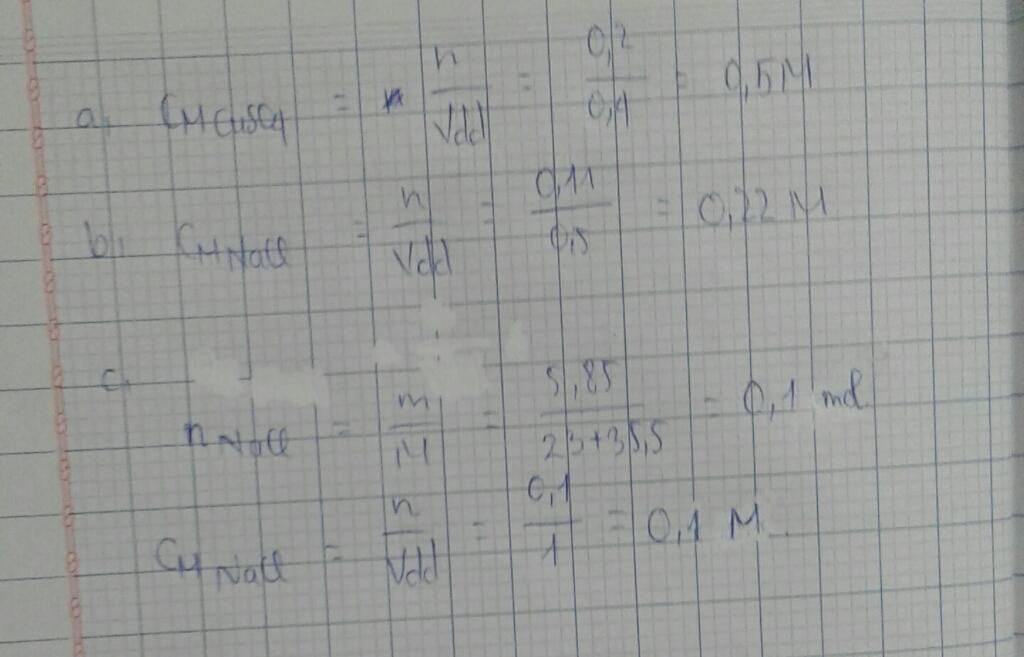 a, CM CuSO4 = n/Vdd = 0,2/0,4 = 0,5M
b, CM NaCl = n/Vdd = 0,11/0,5 = 0,22 M
c, nNaCl = m/M = 5,85/23+35,5 = 0,1 mol
CM NaCl = n/Vdd = 0,1/1 = 0,1 M